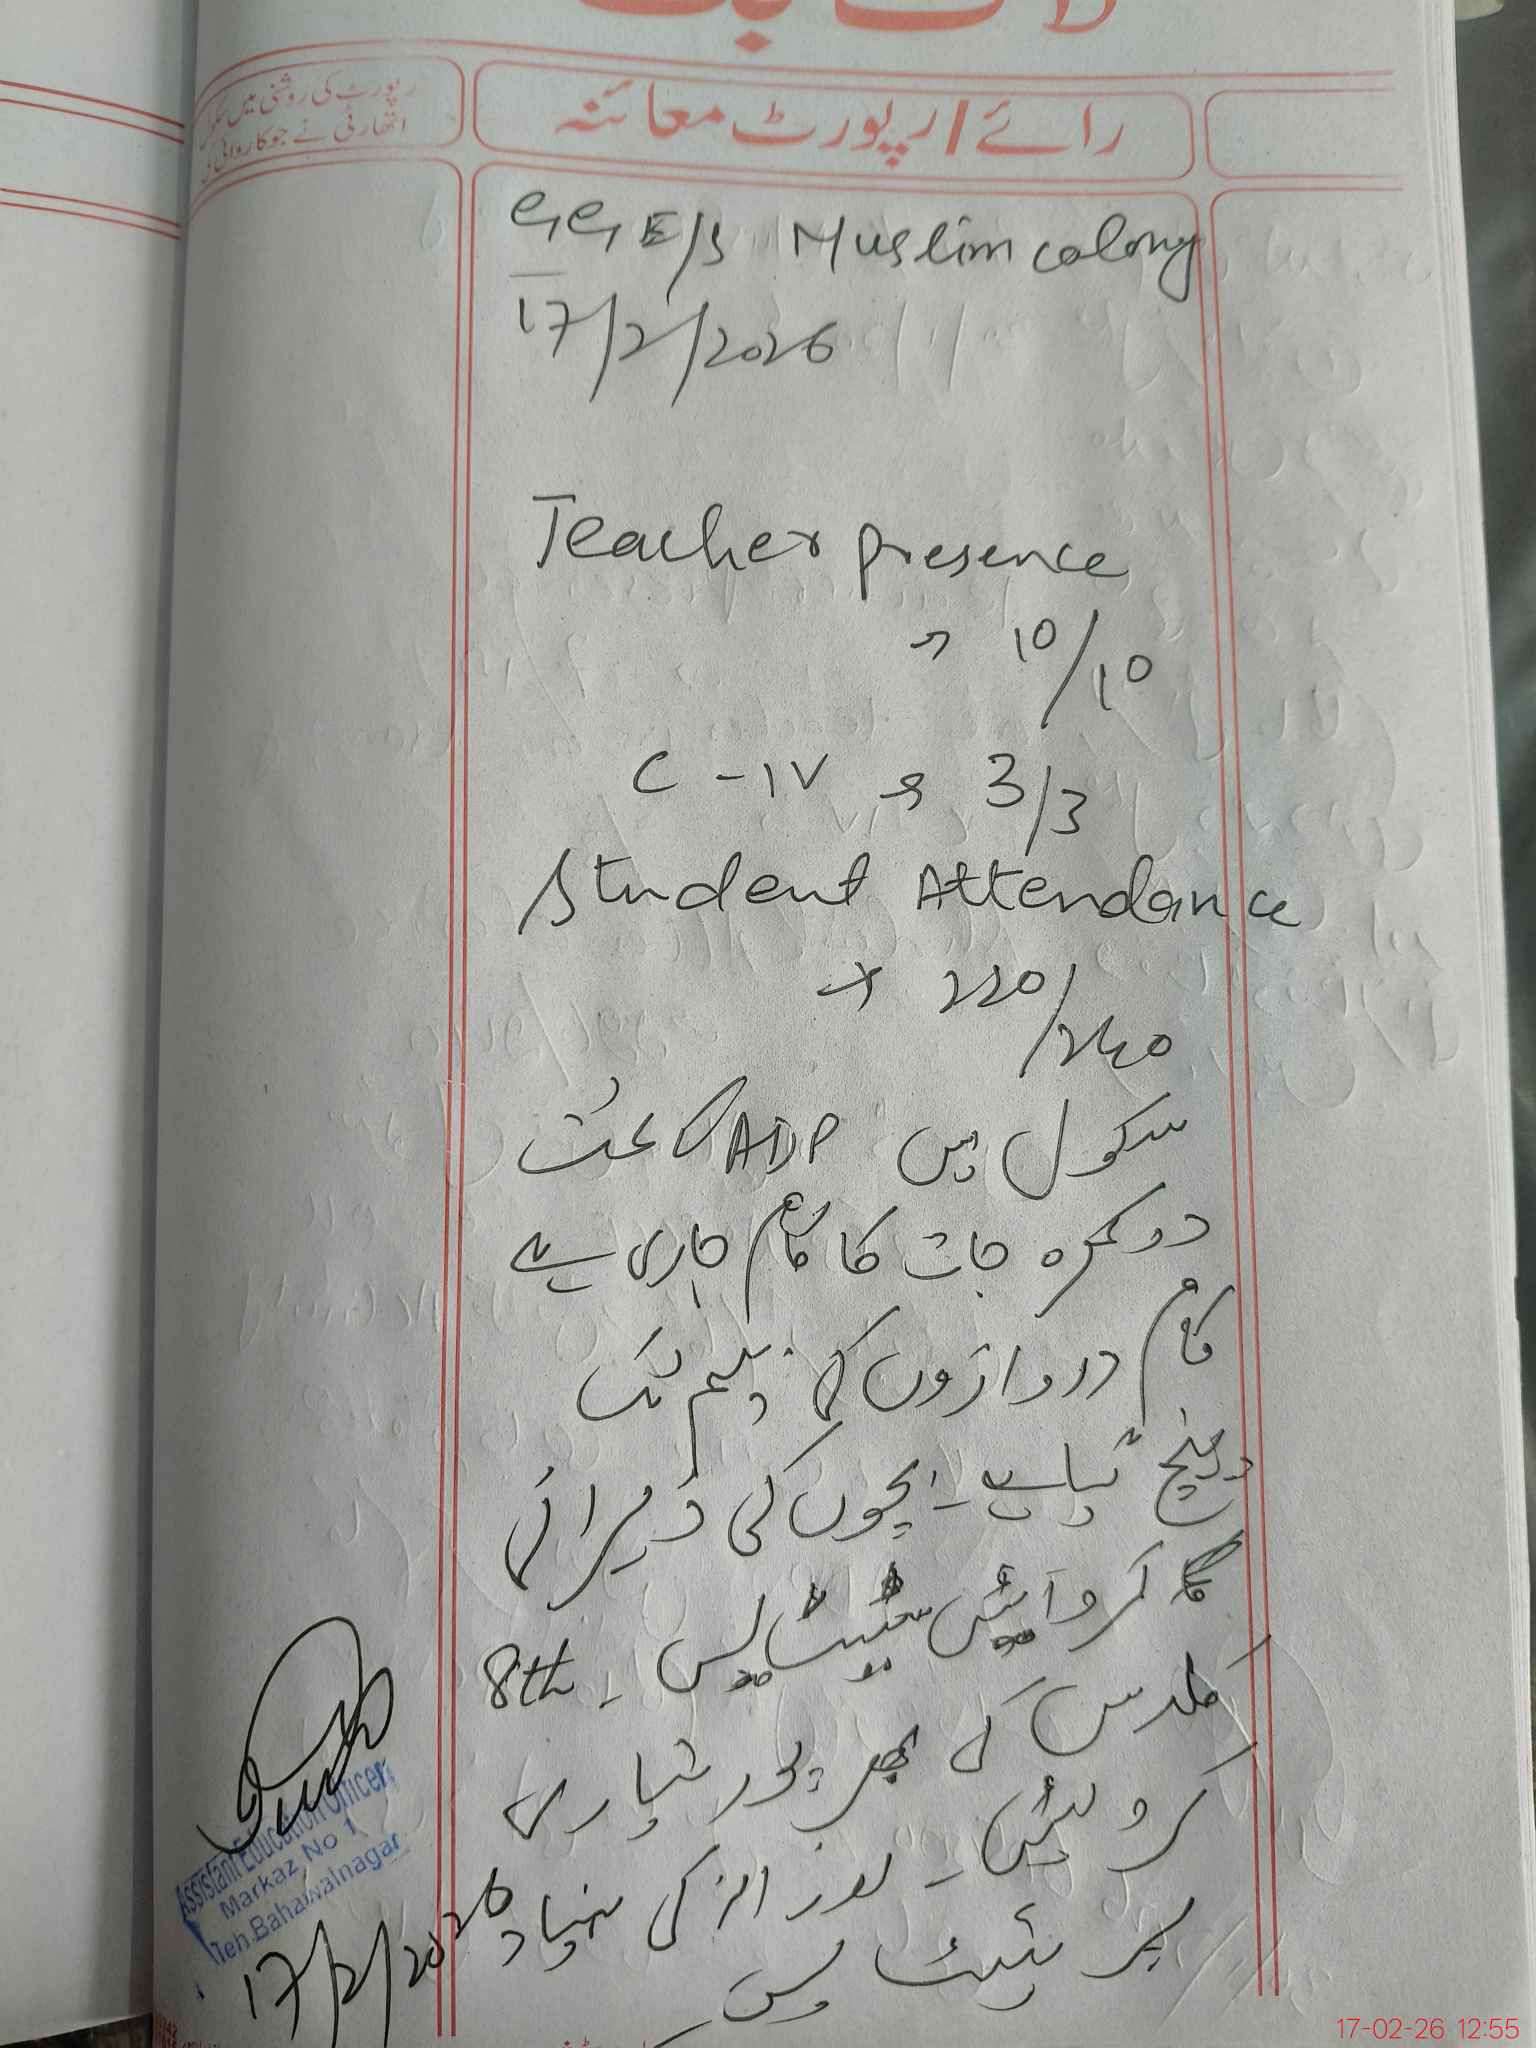 لاگ بک
رائے/رپورٹ معائنہ
رپورٹ کی روشنی میں
اتھارٹی نے جو کاروائی کی
GGE/S Muslim colony
17/2/2026
Teacher presence
10/10
C-IV 3/3
Student Attendance
220/240
سکول میں ADP کے تحت
دو کمرہ جات کا کام جاری ہے
کام دروازوں کی تک
پہنچ گیا ہے۔ بچوں کی دہرائی
کروائیں ٹیسٹ لیں۔ 8th
کلاس کی بھرپور تیاری
کروائیں۔ روزانہ کی بنیاد
پر ٹیسٹ لیں
Assistant Education Officer
Markaz No 1
Teh. Bahawalnagar
17/2/2026
17-02-26 12:55